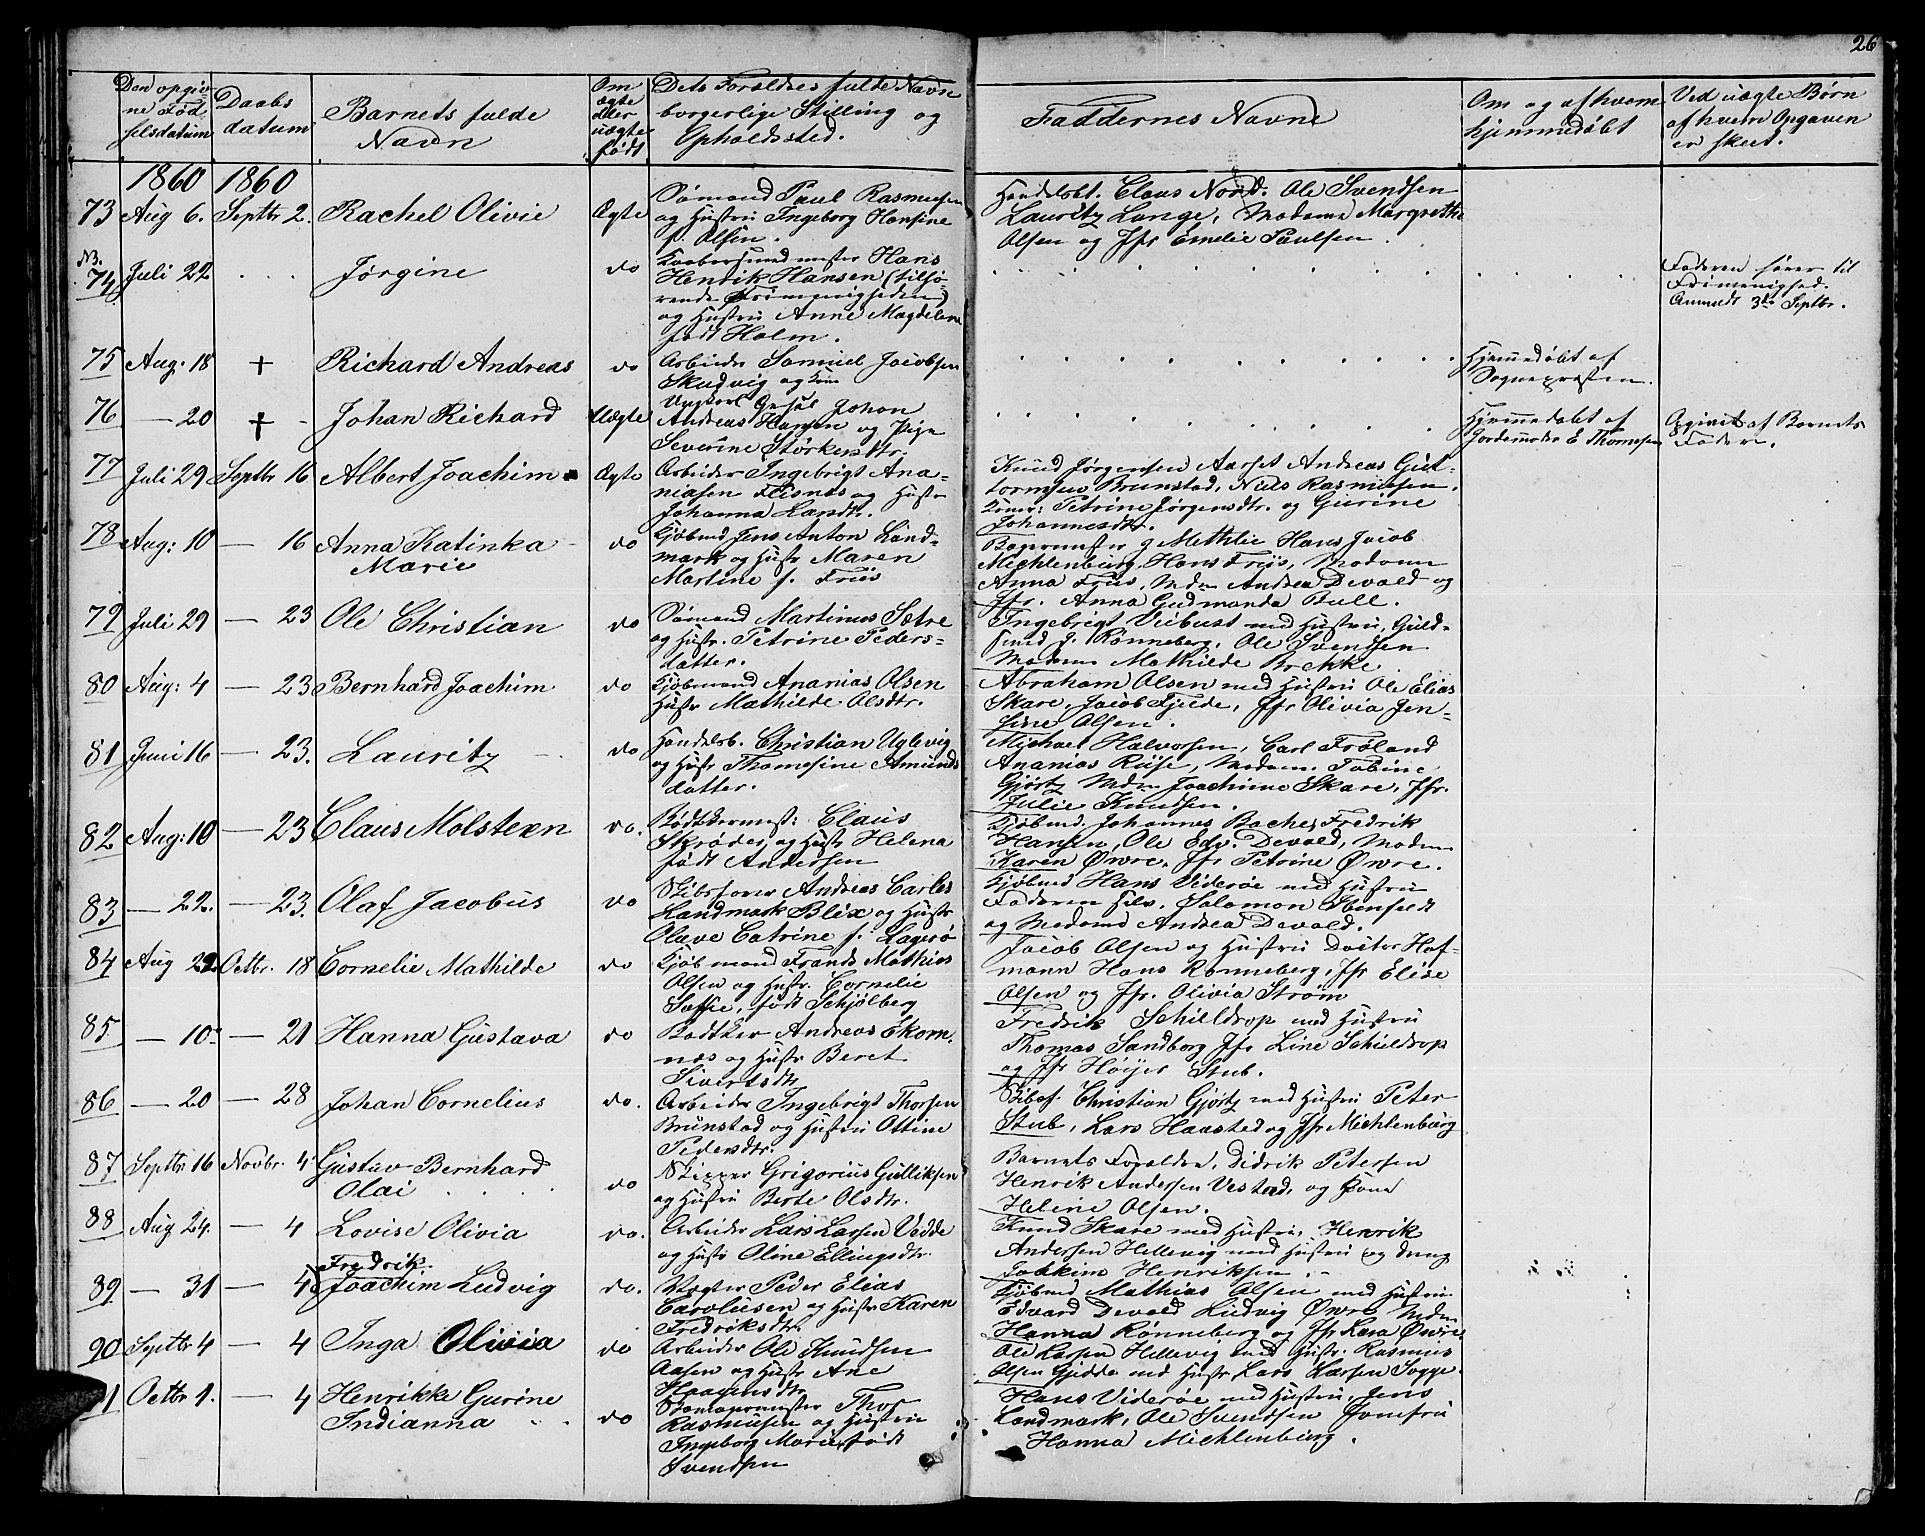 26
Den opgiv-
ne Fød
selsdatum
Daabs
datum
Barnets fulde
Navn
Om
ægte
eller
uægte
født
Dets Forældres fulde Navn
borgerlige Stilling og
Opholdssted.
Faddernes Navne
Om og af hvem
hjemmedøbt
Ved uægte Børn
af hvem Opgaven
er skeet.
1860 1860
73 Aug 6. Septbr 2. Rachel Olivie Ægte
Sømand Paul Rasmussen
og Hustru Ingeborg Hansine
f. Olsen.
Handelsbt. Claus Nord. Ole Svendsen
Lauritz Lange, Madame Margrethe
Olsen og Jfr Emelie Paulsen.
NB.
74 Juli 22 . . . Jørgine do
Kaabersmedmester Hans
Henrik Hansen (tilhø-
rende Frimenigheden)
og Hustru Anne Magdalena
født Holm.
Faderen hører til
Frimenighed.
Anmeldt 3de Septbr.
75 Aug: 18 + Richard Andreas do
Arbeider Samuel Jacobsen
Skudvig og Kone
Hjemmedøbt af
Sognepresten.
76 — 20 + - Johan Richard Uægte
Ungkarl Johan
Andreas Hansen og Pige
Severine Størkersdtr.
Hjemmedøbt af
Jordemoder E Thomesen
Opgivet af Barnets
Fader.
77 Juli 29 Septbr 16 Albert Joachim Ægte
Arbeider Ingebrigt Ana-
niasen Flisnes og Hustr
Johanna Larsdtr.
Knud Jørgensen Aarset Andreas Gut-
tormsen Brunstad, Niels Rasmussen.
Koner: Petrine Jørgensdtr. og Gurine
Johannesdtr.
78 Aug: 10 — 16 Anna Katinka
Marie do
Kjøbmd Jens Anton Land-
mark og Hustr Maren
Martine f. Friis
Bagermester g Methlie Hans Jacob
Michlenburg, Hans Friis, Madam
Anna Friis, Mdm Andrea Devold og
Jfr. Anna Gudmanda Bull.
79 Juli 29 — 23 Ole Christian do
Sømand Martinus Sætre
og Hustr. Petrine Peders-
datter.
Ingebrigt Viebust med Hustru, Guld-
smed J. Rønneberg, Ole Svendsen
Madam Mathilde Brekke
80 Aug: 4 — 23 Bernhard Joachim do
Kjøbmand Ananias Olsen
Hustr Mathilde Olsdtr.
Abraham Olsen med Hustru Ole Elias
Skare, Jacob Fjelde, Jfr Olivia Jen-
sine Olsen.
81 Juni 16 — 23. Lauritz do
Handelsb. Christian Uglevig
og Hustr Thomesine Amunds
datter.
Michael Halvorsen, Carl Frøland
Ananias Riise, Madam. Tobine
Gjørtz Mdm Joachimine Skare, Jfr.
Julie Knudsen.
82 Aug: 10 — 23 Claus Molsteen do.
Bødtkermest: Claus
Skrøder, og Hustr Helena
født Andersen
Kjøbmd. Johannes Bache, Fredrik
Hansen, Ole Edv. Devold, Madam
Karen Øwre, Jfr Petrine Øwre.
83 — 22. — 23. Olaf Jacobus do
Skibsfører Andreas Carles
Landmark Blix og Hustr
Olave Catrine f. Lagerø
Kjøbmd Hans Viderøe med Hustru
Faderen selv, Salomon Ibenfeldt
og Madame Andrea Devold.
84 Aug 22 Octbr. 18 Cornelie Mathilde do
Kjøbmand Frands Mathias
Olsen og Hustr. Cornelie
Soffie, født Schjølberg
Jacob Olsen og Hustru Doctor Hof-
mann Hans Rønneberg, Jfr Elise
Olsen og Jfr. Olivia Strøm
85 — 10 — 21 Hanna Gustava do
Bødtker Andreas Ekorn-
næs og Hustr Beret
Sivertsdtr
Fredrik Schieldrop med Hustru
Thomas Sandborg Jfr Line Schieldrop
og Jfr Høijer Stub.
86 — 20 — 28 Johan Cornelius do.
Arbeider Ingebrigt Thorsen
Brunstad og Hustru Ottine
Pedersdtr.
Skibsf. Christian Gjørtz med Hustru Peter
Stub, Lars Haasted og Jfr Michlenburg
87 Septbr 16 Novbr. 4 Gustav Bernhard
Olai do
Skipper Grigorius Gulliksen
og Hustru Berte Olsdtr.
Barnets Forældre, Didrik Petersen
Henrik Andersen Vestad, og Kone
Helene Olsen.
88 Aug 24. — 4 Lovise Olivia do.
Arbeider Lars Larsen Vedde
og Hustr Oline Ellingsdtr.
Knud Skare med Hustru, Henrik
Andersen Hellevig med Hustru og dreng
Joakim Henriksen.
89 — 31 — 4 Fredrik
Joachim Ludvig do.
Vægter Peder Elias
Caroliusen og Hustr Karen
Fredriksdtr.
Kjøbmd Mathias Olsen med Hustru
Edvard Devold Ludvig Øwre Mdm
Hanna Rønneberg og Jfr Lava Øwre
90 Septbr 4 — 4 Inga Olivia do
Arbeider Ole Knudsen
Aasen og Hustr Ane
Haagensdtr
Ole Larsen Hellevig med Hustr. Rasmus
Olsen Gjedde med Hustr, Lars Larsen Sogge.
91 Octbr 1. — 4 Henrikke Gurine
Indianna do
Rasmussen og Hustru
Ingeborg Marie, født
Svendsen
Hans Viderøe med Hustru, Jens
Landmark, Ole Svendsen Jomfru
Hanna Michlenburg.